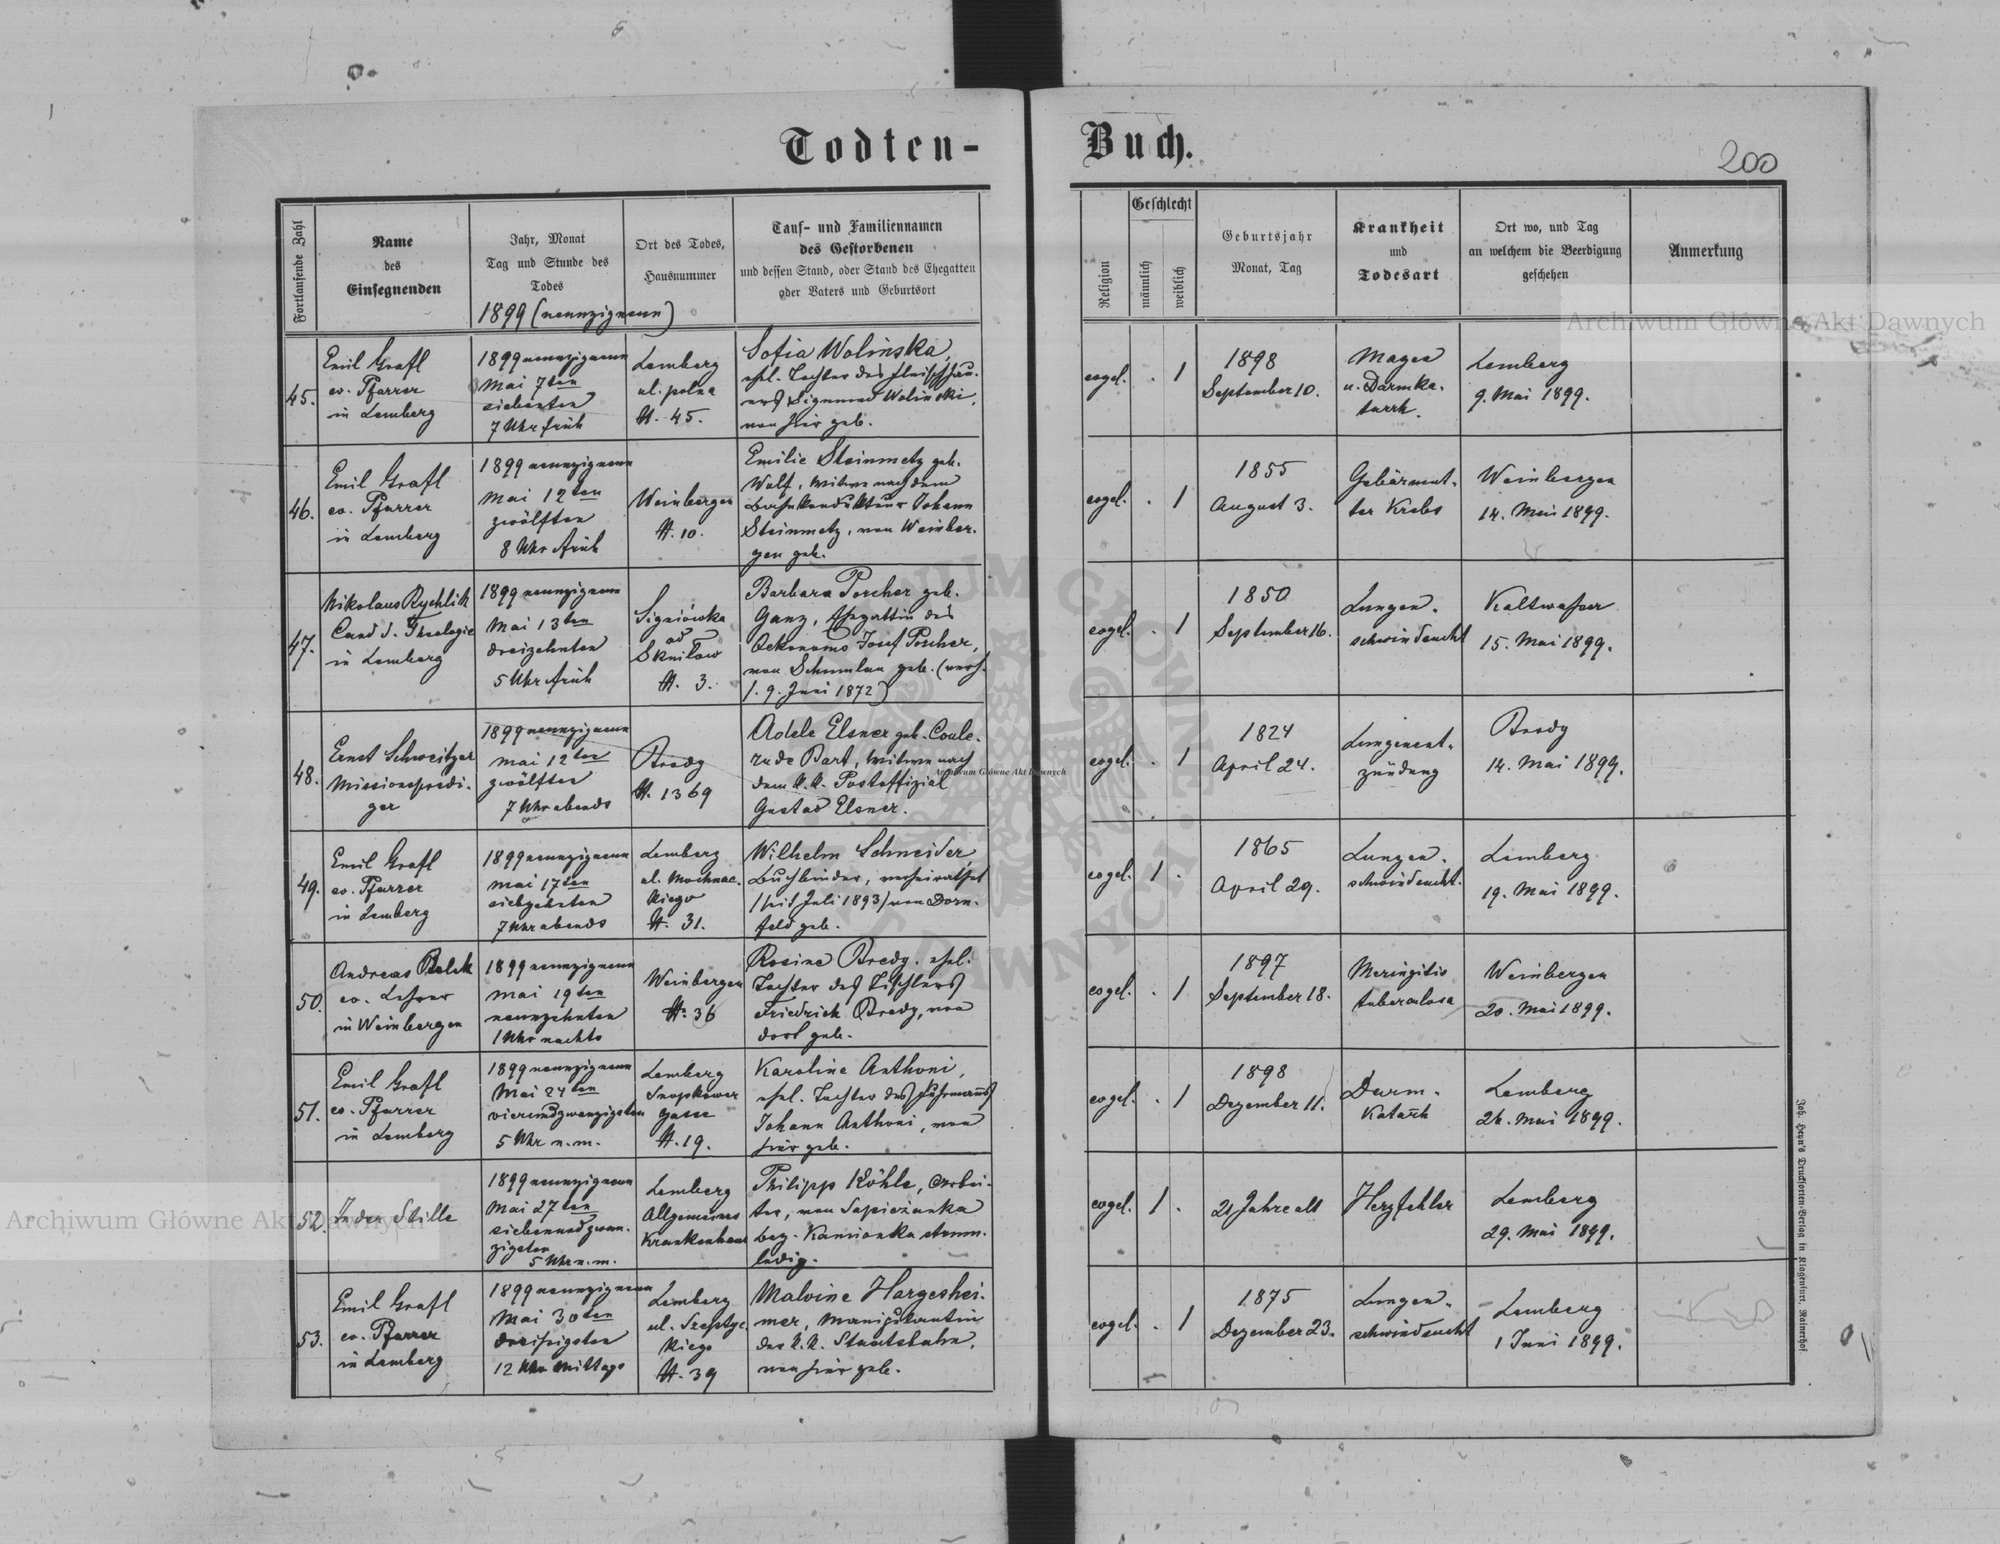 Todten-
Buch.
200
Fortlaufende Zahl
Name
des
Einsegnenden
Jahr, Monat
Tag und Stunde des
Todes
1899 (neunzigneun)
Ort des Todes,
Hausnummer
Tauf- und Familiennamen
des Gestorbenen
und dessen Stand, oder Stand des Ehegatten
oder Vaters und Geburtsort
Religion
Geschlecht
männlich
weiblich
Geburtsjahr
Monat, Tag
Krankheit
und
Todesart
Ort wo, und Tag
an welchem die Beerdigung
geschehen
Anmerkung
45.
Emil Grafl
ev. Pfarrer
in Lemberg
1899 neunzigneun
Mai 7ten
siebenten
7 Uhr früh
Lemberg
ul. polna
N. 45.
Sofia Wolinska,
ehel. Tochter des Fleischhau-
ers Sigmund Wolinski,
von hier geb.
evgel.
. 1
1898
September 10.
Magen
u. Darmka-
tarrh.
Lemberg
9. Mai 1899.
46.
Emil Grafl
ev. Pfarrer
in Lemberg
1899 neunzigneun
Mai 12ten
zwölften
8 Uhr früh
Weinbergen
N. 10.
Emilie Steinmetz geb.
Wolf, Witwe nach dem
Bahnkondukteur Johann
Steinmetz, von Weinber-
gen geb.
evgel.
. 1
1855
August 3.
Gebärmut-
ter Krebs
Weinbergen
14. Mai 1899.
47.
Nikolaus Rychlik
Cand. d. Theologie
in Lemberg
1899 neunzigneun
Mai 13ten
dreizehnten
5 Uhr früh
Signiówka
ad
Skniłow
N. 3.
Barbara Porcher geb.
Ganz, Ehegattin des
Oekonoms Josef Porcher,
von Schumlau geb. (verh.
s. 9. Juni 1872)
evgel.
. 1
1850
September 16.
Lungen-
schwindsucht
Kaltwasser
15. Mai 1899.
48.
Ernst Schweitzer
Missionspredi-
ger
1899 neunzigneun
Mai 12ten
zwölften
7 Uhr abends
Brody
N. 1369
Adele Elsner geb. Coule-
ru de Bart, Witwe nach
dem k.k. Postoffizial
Gustav Elsner.
evgel.
. 1
1824
April 24.
Lungenent-
zündung
Brody
14. Mai 1899.
49.
Emil Grafl
ev. Pfarrer
in Lemberg
1899 neunzigneun
Mai 17ten
siebzehnten
7 Uhr abends
Lemberg
ul. Mochnac-
kiego
N. 31.
Wilhelm Schneider,
Buchbinder, verheirathet
(seit Juli 1893) von Dorn-
feld geb.
evgel.
1 .
1865
April 29.
Lungen-
schwindsucht.
Lemberg
19. Mai 1899.
50.
Andreas Bolek
ev. Lehrer
in Weinbergen
1899 neunzigneun
Mai 19ten
neunzehnten
1 Uhr nachts
Weinbergen
N. 36
Rosine Bredy, ehel.
Tochter des Tischlers
Friedrich Bredy, von
dort geb.
evgel.
. 1
1897
September 18.
Meningitis
tuberculosa
Weinbergen
20. Mai 1899.
51.
Emil Grafl
ev. Pfarrer
in Lemberg
1899 neunzigneun
Mai 24ten
vierundzwanzigsten
5 Uhr n.m.
Lemberg
Snopkower
gasse
N. 19.
Karoline Anthoni,
ehel. Tochter des Fuhrmanns
Johann Anthoni, von
hier geb.
evgel.
. 1
1898
Dezember 11.
Darm-
Katarrh
Lemberg
26. Mai 1899.
52.
In der Stille
1899 neunzigneun
Mai 27ten
siebenundzwan-
zigsten
5 Uhr n.m.
Lemberg
Allgemeines
Krankenhaus
Philipp Köhle, Arbei-
ter, von Sapiezanka
bez. Kamionka strum.
ledig.
evgel.
1 .
21 Jahre alt
Herzfehler
Lemberg
29. Mai 1899.
53.
Emil Grafl
ev. Pfarrer
in Lemberg
1899 neunzigneun
Mai 30ten
dreissigsten
12 Uhr Mittags
Lemberg
ul. Szeptyc-
kiego
N. 39
Malvine Hargeshei-
mer, Manipulantin
der k.k. Staatsbahn,
von hier geb.
evgel.
. 1
1875
Dezember 23.
Lungen-
schwindsucht
Lemberg
1 Juni 1899.
Joh. Heyn's Drucksorten-Verlag in Klagenfurt, Rainerhof
Archiwum Główne Akt Dawnych
Archiwum Główne Akt Dawnych
Archiwum Główne Akt Dawnych